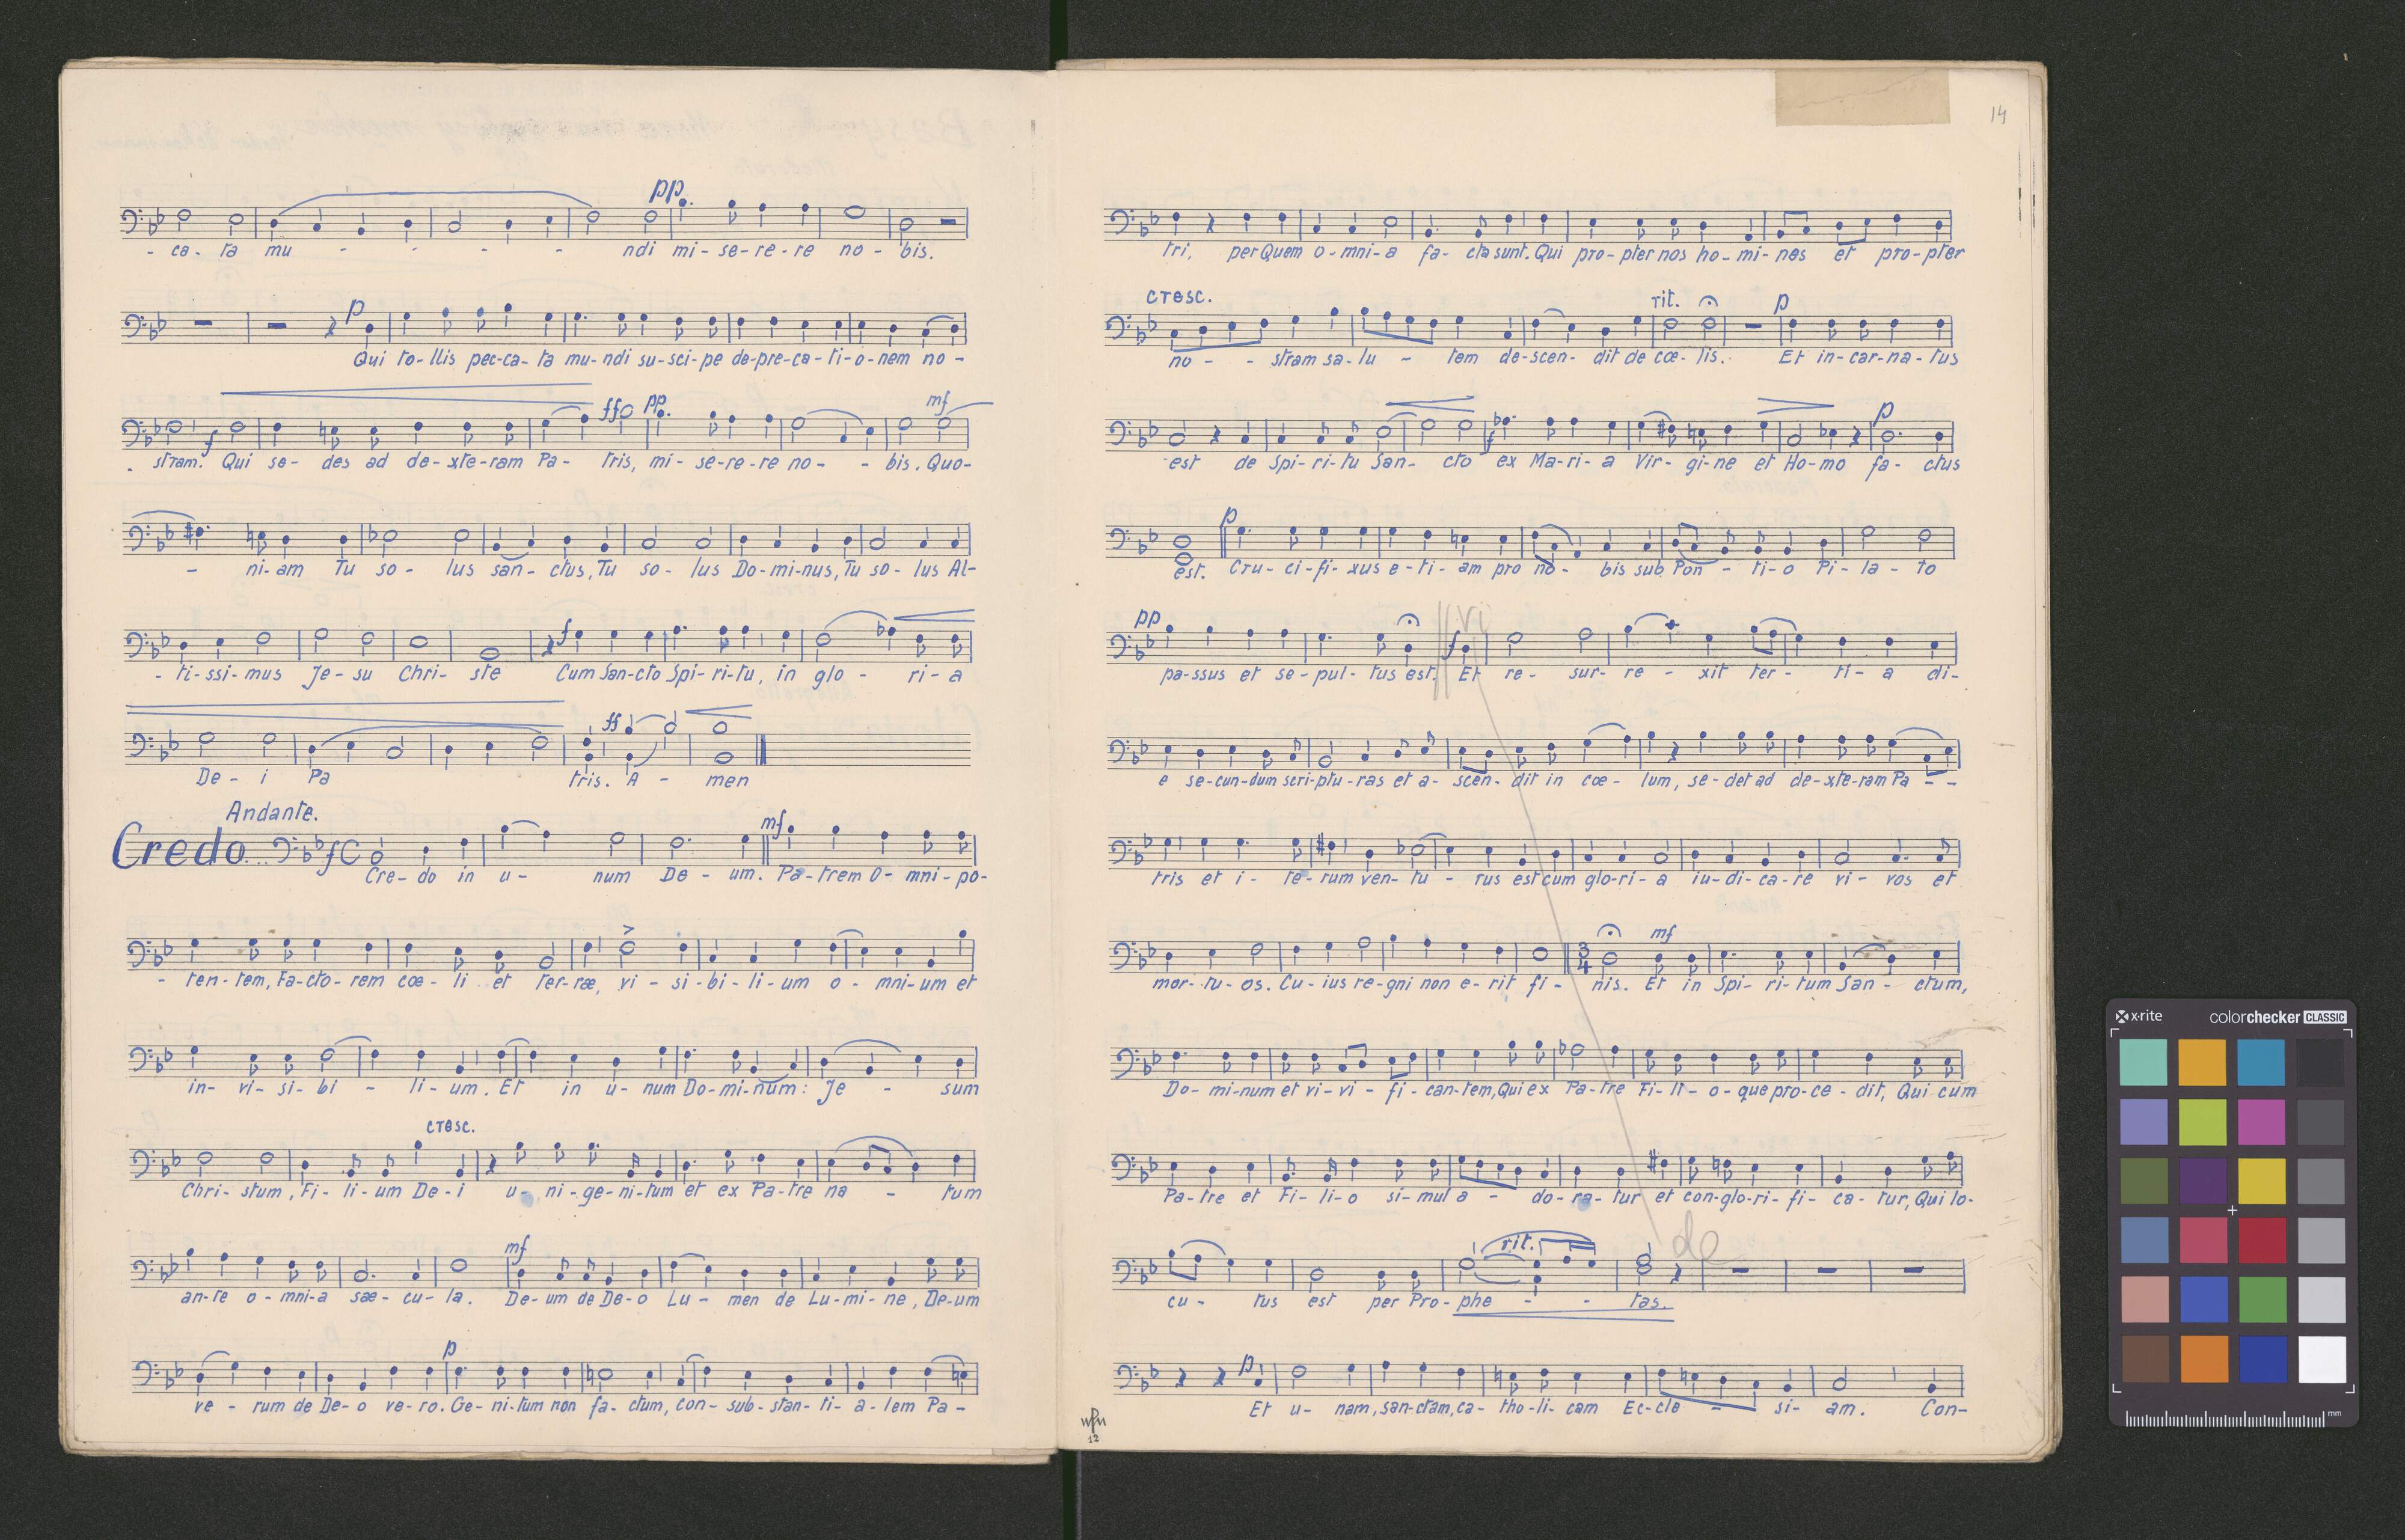 pp
- ca - ta mu - - - - - ndi mi - se - re - re no - bis.
p
Qui to - llis pec - ca - ta mu - ndi su - sci - pe de - pre - ca - ti - o - nem no -
f ff pp mf
- stram. Qui se - des ad de - xte - ram Pa - tris, mi - se - re - re no - - bis. Quo -
- ni - am Tu so - lus san - ctus, Tu so - lus Do - mi - nus, Tu so - lus Al -
f
- ti - ssi - mus Je - su Chri - ste Cum San - cto Spi - ri - tu, in glo - ri - a
ff
De - i Pa tris. A - men
Andante.
Credo f C
Cre - do in u - num De - um. Pa - trem O - mni - po -
mf
- ten - tem, Fa - cto - rem cœ - li et ter - ræ, vi - si - bi - li - um o - mni - um et
in - vi - si - bi - li - um. Et in u - num Do - mi - num: Je - sum
cresc.
Chri - stum, Fi - li - um De - i u - ni - ge - ni - tum et ex Pa - tre na - tum
mf
an - te o - mni - a sæ - cu - la. De - um de De - o Lu - men de Lu - mi - ne, De - um
p
ve - rum de De - o ve - ro. Ge - ni - tum non fa - ctum, con - sub - stan - ti - a - lem Pa -
14
tri, per Quem o - mni - a fa - cta sunt. Qui pro - pter nos ho - mi - nes et pro - pter
cresc. rit. p
no - - stram sa - lu - tem de - scen - dit de cœ - lis. Et in - car - na - tus
f p
est de Spi - ri - tu San - cto ex Ma - ri - a Vir - gi - ne et Ho - mo fa - ctus
p
est. Cru - ci - fi - xus e - ti - am pro no - bis sub Pon - ti - o Pi - la - to
pp vi f
pa - ssus et se - pul - tus est. Et re - sur - re - xit ter - ti - a di -
e se - cun - dum scri - ptu - ras et a - scen - dit in cœ - lum, se - det ad de - xte - ram Pa - -
tris et i - te - rum ven - tu - rus est cum glo - ri - a iu - di - ca - re vi - vos et
3 4 mf
mor - tu - os. Cu - ius re - gni non e - rit fi - nis. Et in Spi - ri - tum San - ctum,
Do - mi - num et vi - vi - fi - can - tem, Qui ex Pa - tre Fi - li - o - que pro - ce - dit, Qui cum
Pa - tre et Fi - li - o si - mul a - do - ra - tur et con - glo - ri - fi - ca - tur, Qui lo -
rit. de
cu - tus est per Pro - phe - - tas.
p
Et u - nam, san - ctam, ca - tho - li - cam Ec - cle - si - am. Con -
12
x-rite colorchecker CLASSIC
mm